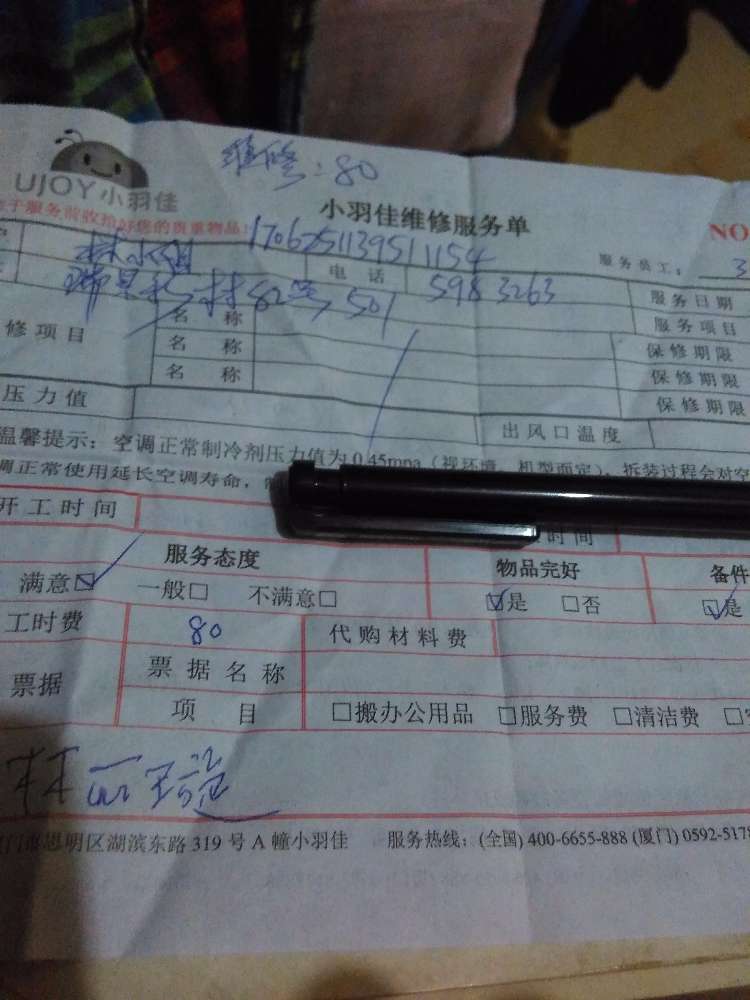 维修：80
UJOY小羽佳
小羽佳维修服务单
NO
于服务前收拾好您的贵重物品！
17067511395 11154
服务员工： 3
林小姐
电 话
598 3263
服务日期
村82号501
名 称
服务项目
修项目
名 称
保修期限
名 称
保修期限
压力值
保修期限
出风口温度
温馨提示：空调正常制冷剂压力值为0.45mpa（视环境、机型而定），拆装过程会对空
调正常使用延长空调寿命，
开工时间
时间
服务态度
物品完好
备件
满意☑ 一般□ 不满意□
☑是 □否
☑是
工时费
80
代购材料费
票据
票据名称
项 目
□搬办公用品 □服务费 □清洁费
门市思明区湖滨东路 319 号 A 幢小羽佳 服务热线：(全国) 400-6655-888 (厦门) 0592-5178